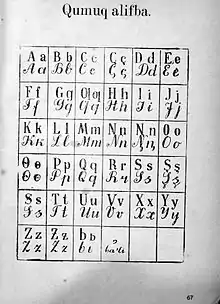 Qumuq alifba.
Aa Bʙ Cc Çç Dd Ee
Aa Bʙ Cc Çç Dd Ee
Ff Gg Ƣƣ Hh Ii Jj
Ff Gg Ƣƣ Hh Ii Jj
Kk Ll Mm Nn Ꞑꞑ Oo
Kk Ll Mm Nn Ꞑꞑ Oo
Ɵɵ Pp Qq Rr Ss Şş
Ɵɵ Pp Qq Rr Ss Şş
Ꞩꞩ Tt Uu Vv Xx Yy
Ꞩꞩ Tt Uu Vv Xx Yy
Zz Ƶƶ Ьь
Zz Ƶƶ Ьь
67